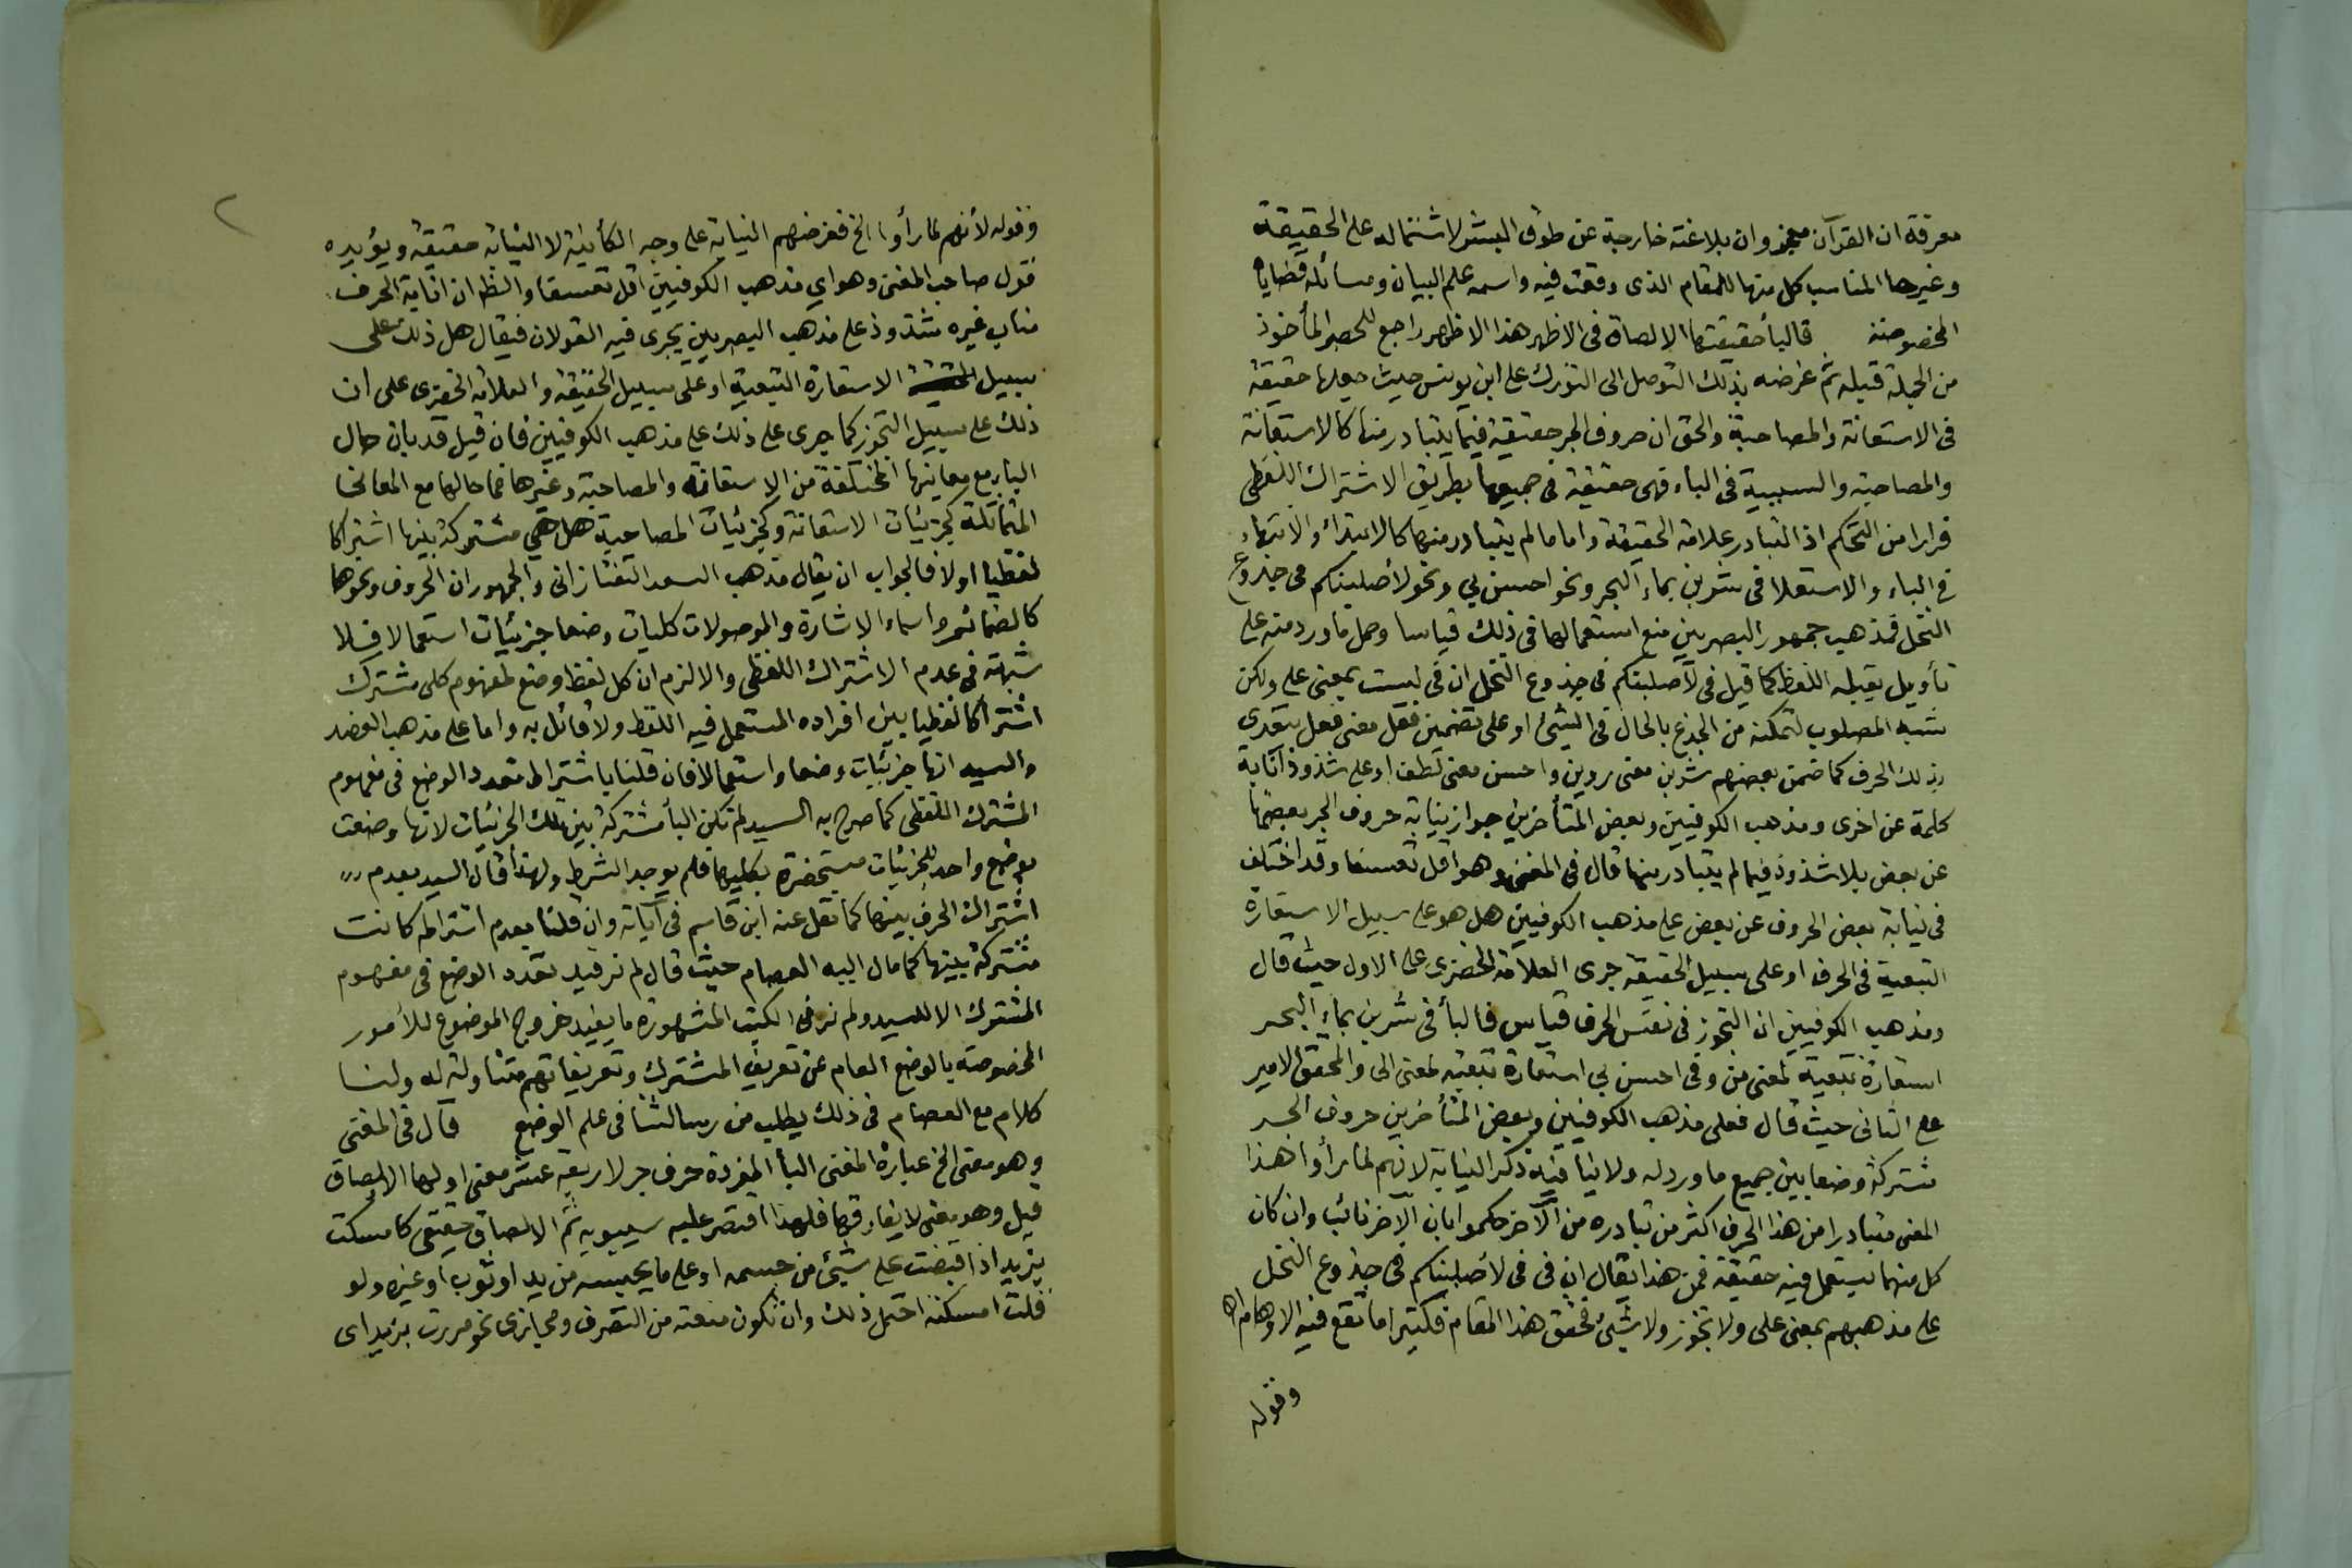 معرفة ان القرآن معجز وان بلاغته خارجة عن طوق البشر لاشتماله على الحقيقة
وغيرها المناسب كل منها للمقام الذى وقعت فيه واسمه علم البيان ومسائله قضاياه
المخصوصة قالبأ حقيقتها الالصاق فى الاظهر هذا الاظهر راجع للحصر المأخوذ
من الجملة قبله ثم غرضه بذلك التوصل الى التورك على ابن يونس حيث جعلها حقيقة
فى الاستعانة والمصاحبة والحق ان حروف الجر حقيقة فيما يتبادر منها كالاستعانة
والمصاحبة والسببية فى الباء فهى حقيقة فى جميعها بطريق الاشتراك اللفظى
فرارا من التحكم اذ التبادر علامة الحقيقة واما ما لم يتبادر منها كالابتداء والانتهاء
فى الباء والاستعلا فى شربن بماء البحر ونحو احسن بي ونحو لأصلبنكم فى جذوع
النخل فمذهب جمهور البصريين منع استعمالها فى ذلك قياسا وحمل ما ورد منه على
تأويل يقبله اللفظ كما قيل فى لأصلبنكم فى جذوع النخل ان فى ليست بمعنى على ولكن
شبه المصلوب لتمكنه من الجذع بالحال فى الشئ او على تضمين فعل معنى فعل يتعدى
بذلك الحرف كما ضمن بعضهم شربن معنى روين واحسن معنى لطف او على شذوذ انابة
كلمة عن اخرى ومذهب الكوفيين وبعض المتأخرين جواز نيابة حروف الجر بعضها
عن بعض بلا شذوذ فيما لم يتبادر منها قال فى المغنى وهو اقل تعسفا وقد اختلف
فى نيابة بعض الحروف عن بعض على مذهب الكوفيين هل هو على سبيل الاستعارة
التبعية فى الحرف او على سبيل الحقيقة جرى العلامة الخضرى على الاول حيث قال
ومذهب الكوفيين ان التجوز فى نفس الحرف قياس فالبأ فى شربن بماء البحر
استعارة تبعية لمعنى من وفى احسن بي استعارة تبعية لمعنى الى والمحقق الامير
على الثانى حيث قال فعلى مذهب الكوفيين وبعض المتأخرين حروف الجر
مشتركة وضعا بين جميع ما ورد له ولا ينافيه ذكر النيابة لانهم لما رأوا هذا
المعنى متبادرا من هذا الحرف اكثر من تبادره من الآخر حكموا بان الآخر نائب وان كان
كل منهما يستعمل فيه حقيقة فمن هذا يقال ان فى فى لأصلبنكم فى جذوع النخل
على مذهبهم بمعنى على ولا تجوز ولا شئ فحقق هذا المقام فكثيرا ما تقع فيه الاوهام اه
وقوله
وقوله لأنهم لما رأوا الخ فغرضهم النيابة على وجه الكأنية لا النيابة حقيقة ويؤيده
قول صاحب المغنى وهو اي مذهب الكوفيين اقل تعسفا والظ ان انابة الحرف
مناب غيره شذوذ على مذهب البصريين يجرى فيه القولان فيقال هل ذلك على
سبيل الاستعارة التبعية او على سبيل الحقيقة والعلامة الخضرى على ان
ذلك على سبيل التجوز كما جرى على ذلك على مذهب الكوفيين فان قيل قد بان حال
الباء مع معانيها المختلفة من الاستعانة والمصاحبة وغيرها فما حالها مع المعانى
المتماثلة كجزئيات الاستعانة وكجزئيات المصاحبة هل هي مشتركة بينها اشتراكا
لفظيا اولا فالجواب ان يقال مذهب السعد التفتازانى والجمهور ان الحروف ونحوها
كالضمائر واسماء الاشارة والموصولات كليات وضعا جزئيات استعمالا فلا
شبهة فى عدم الاشتراك اللفظى والا لزم ان كل لفظ وضع لمفهوم كلى مشترك
اشتراكا لفظيا بين افراده المستعمل فيه اللفظ ولا قائل به واما على مذهب العضد
والسيد انها جزئيات وضعا واستعمالا فان قلنا باشتراط تعدد الوضع فى مفهوم
المشترك اللفظى كما صرح به السيد لم تكن البأ مشتركة بين تلك الجزئيات لانها وضعت
بوضع واحد للجزئيات مستحضرة بكليها فلم يوجد الشرط ولهذا قال السيد بعدم
اشتراك الحرف بينها كما نقل عنه ابن قاسم فى آياته وان قلنا بعدم اشتراطه كانت
مشتركة بينها كما مال اليه العصام حيث قال لم نر قيد تعدد الوضع فى مفهوم
المشترك الا للسيد ولم نر فى الكتب المشهورة ما يفيد خروج الموضوع للأمور
المخصوصة بالوضع العام عن تعريف المشترك وتعريفاتهم متناولة له ولنا
كلام مع العصام فى ذلك يطلب من رسالتنا فى علم الوضع قال فى المغنى
وهو معنى الخ عبارة المغنى البأ المفردة حرف جر لاربعة عشر معنى اولها الالصاق
قيل وهو معنى لا يفارقها فلهذا اقتصر عليه سيبويه ثم الالصاق حقيقى كامسكت
بزيد اذا قبضت على شئ من جسمه او على ما يحبسه من يد او ثوب او غيره ولو
قلت امسكته احتمل ذلك وان تكون منعته من التصرف ومجازى نحو مررت بزيد اى